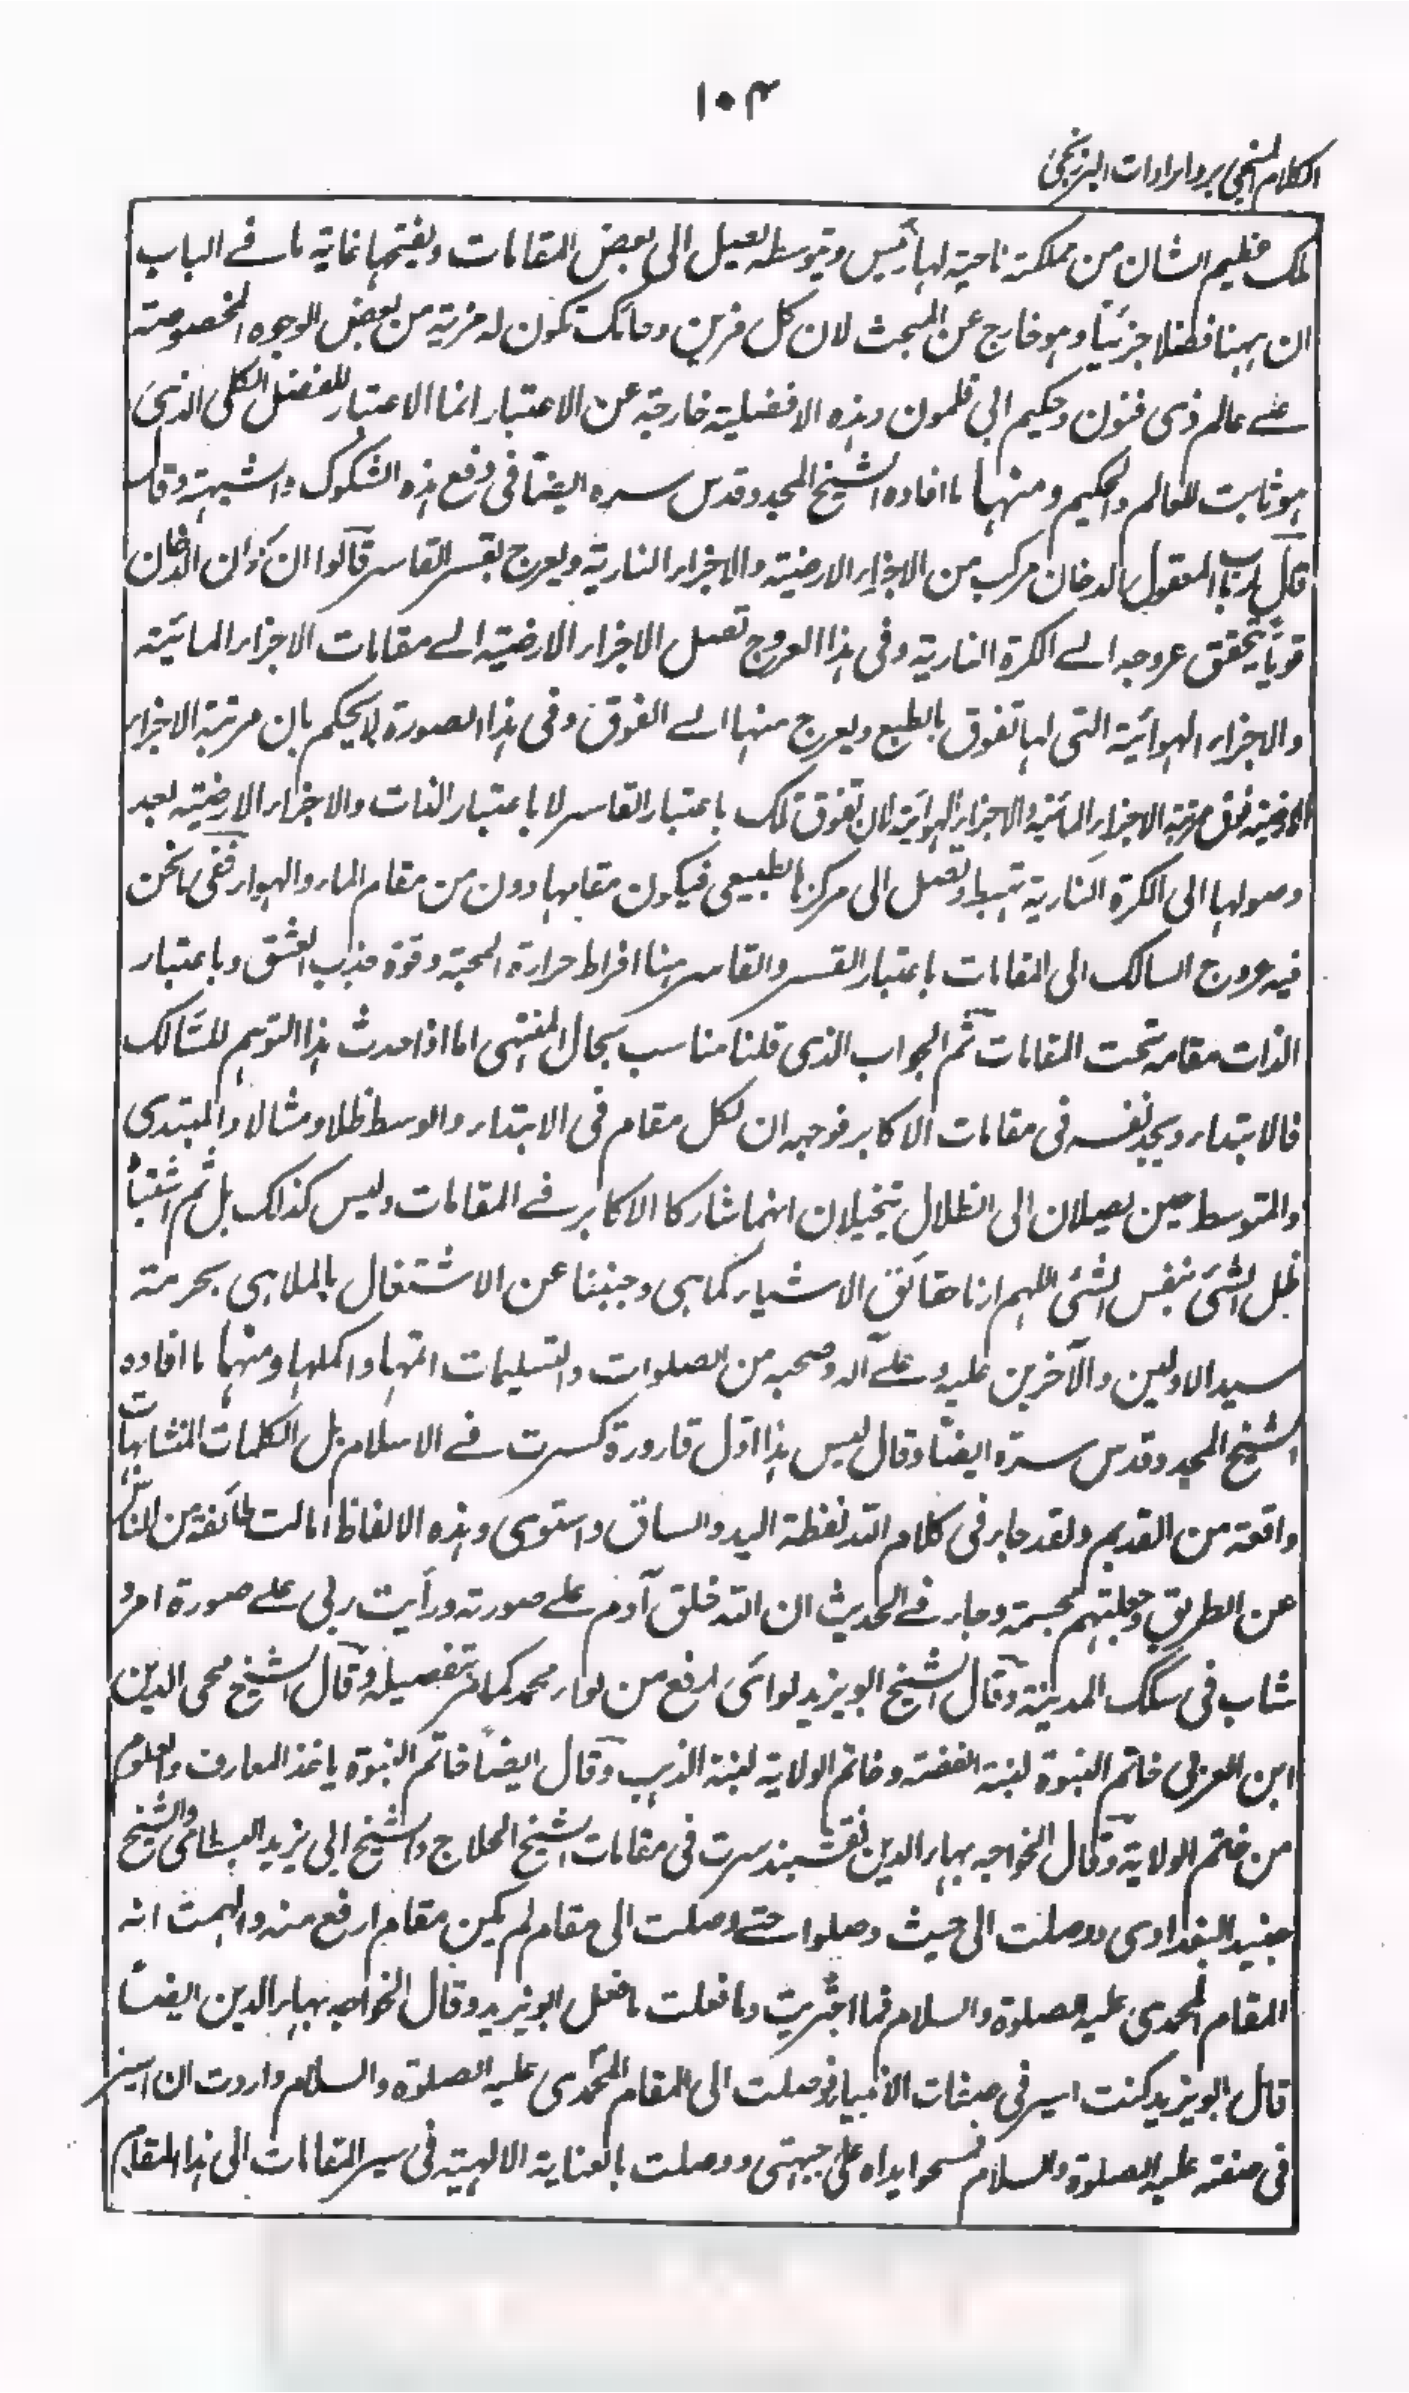 ١٠۴
الكلام المنجي برد ايرادات البرزنجي
ملك عظيم الشان من مملكة ناحية لها رئيس وبتوسطه يصل الى بعض المقامات ويفتحها غاية ما في الباب
ان ههنا فضلا جزئيا وهو خارج عن المبحث لان كل فرين وحائك تكون له مزية من بعض الوجوه المخصوصة
على عالم ذى فنون وحكيم الى قلمون وهذه الافضلية خارجة عن الاعتبار انما الاعتبار للفضل الكلى الذى
هو ثابت للعالم والحكيم ومنها ما افاده الشيخ المجدد قدس سره ايضا فى دفع هذه الشكوك والشبهة وقال
قال ارباب المعقول الدخان مركب من الاجزاء الارضية والاجزاء النارية ويعرج بقسر القاسر قالوا ان كان الدخان
قويا يتحقق عروجه الى الكرة النارية وفى هذا العروج تصل الاجزاء الارضية الى مقامات الاجزاء المائية
والاجزاء الهوائية التى لها تفوق بالطبع ويعرج منها الى الفوق وفى هذا الصورة لا يحكم بان مرتبة الاجزاء
الارضية فوق مرتبة الاجزاء المائية والاجزاء الهوائية لان تفوق تلك باعتبار القاسر لا باعتبار الذات والاجزاء الارضية بعد
وصولها الى الكرة النارية تهبط وتصل الى مركزها الطبيعى فيكون مقامها دون من مقام الماء والهواء ففى ما نحن
فيه عروج السالك الى المقامات باعتبار القسر والقاسر هنا افراط حرارة المحبة وقوة جذب العشق وباعتبار
الذات مقامه تحت المقامات ثم الجواب الذى قلنا مناسب بحال المنتهى اما اذا حدث هذا التوهم للسالك
فالابتداء ويجد نفسه فى مقامات الاكابر فوجهه ان لكل مقام فى الابتداء والوسط ظلا ومثالا والمبتدى
والمتوسط حين يصيلان الى الظلال يتخيلان انهما شاركا الاكابر فى المقامات وليس كذلك بل ثم اشتباه
ظل الشئ بنفس الشئ اللهم ارنا حقائق الاشياء كما هى وجنبنا عن الاشتغال بالملاهى بحرمة
سيد الاولين والآخرين عليه وعلى آله وصحبه من الصلوات والتسليمات اتمها واكملها ومنها ما افاده
الشيخ المجدد قدس سره ايضا وقال ليس هذا اول قارورة كسرت فى الاسلام بل الكلمات المتشابهات
واقعة من القديم ولقد جاء فى كلام الله لفظة اليد والساق واستوى وهذه الالفاظ امالت طائفة من الناس
عن الطريق وجعلتهم مجسمة وجاء فى الحديث ان الله خلق آدم على صورته ورأيت ربى على صورة امرد
شاب فى سكك المدينة وقال الشيخ ابو يزيد لوائى ارفع من لواء محمد كما مر تفصيله وقال الشيخ محى الدين
ابن العربى خاتم النبوة لبنة الفضة وخاتم الولاية لبنة الذهب وقال ايضا خاتم النبوة ياخذ المعارف والعلوم
من ختم الولاية وقال الخواجه بهاء الدين نقشبند سرت فى مقامات الشيخ الحلاج والشيخ ابى يزيد البسطامى والشيخ
جنيد البغدادى ووصلت الى حيث وصلوا حتى وصلت الى مقام لم يكن مقام ارفع منه والهمت انه
المقام المحمدى عليه الصلوة والسلام فما اجتريت وما فعلت ما فعل ابو يزيد وقال الخواجه بهاء الدين ايضا
قال ابو يزيد كنت اسير فى صفات الانبياء فوصلت الى المقام المحمدى عليه الصلوة والسلام واردت ان اسير
فى صفته عليه الصلوة والسلام فمسحوا يداه على جبهتى ووصلت بالعناية الالهية فى سير المقامات الى هذا المقام